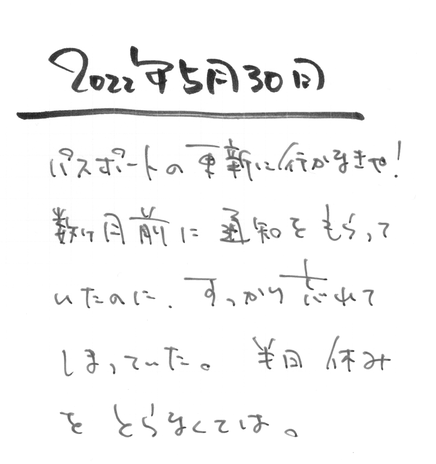 2022年5月30日
パスポートの更新に行かなきゃ!
数ヶ月前に通知をもらって
いたのに、すっかり忘れて
しまっていた。半日休み
をとらなくては。